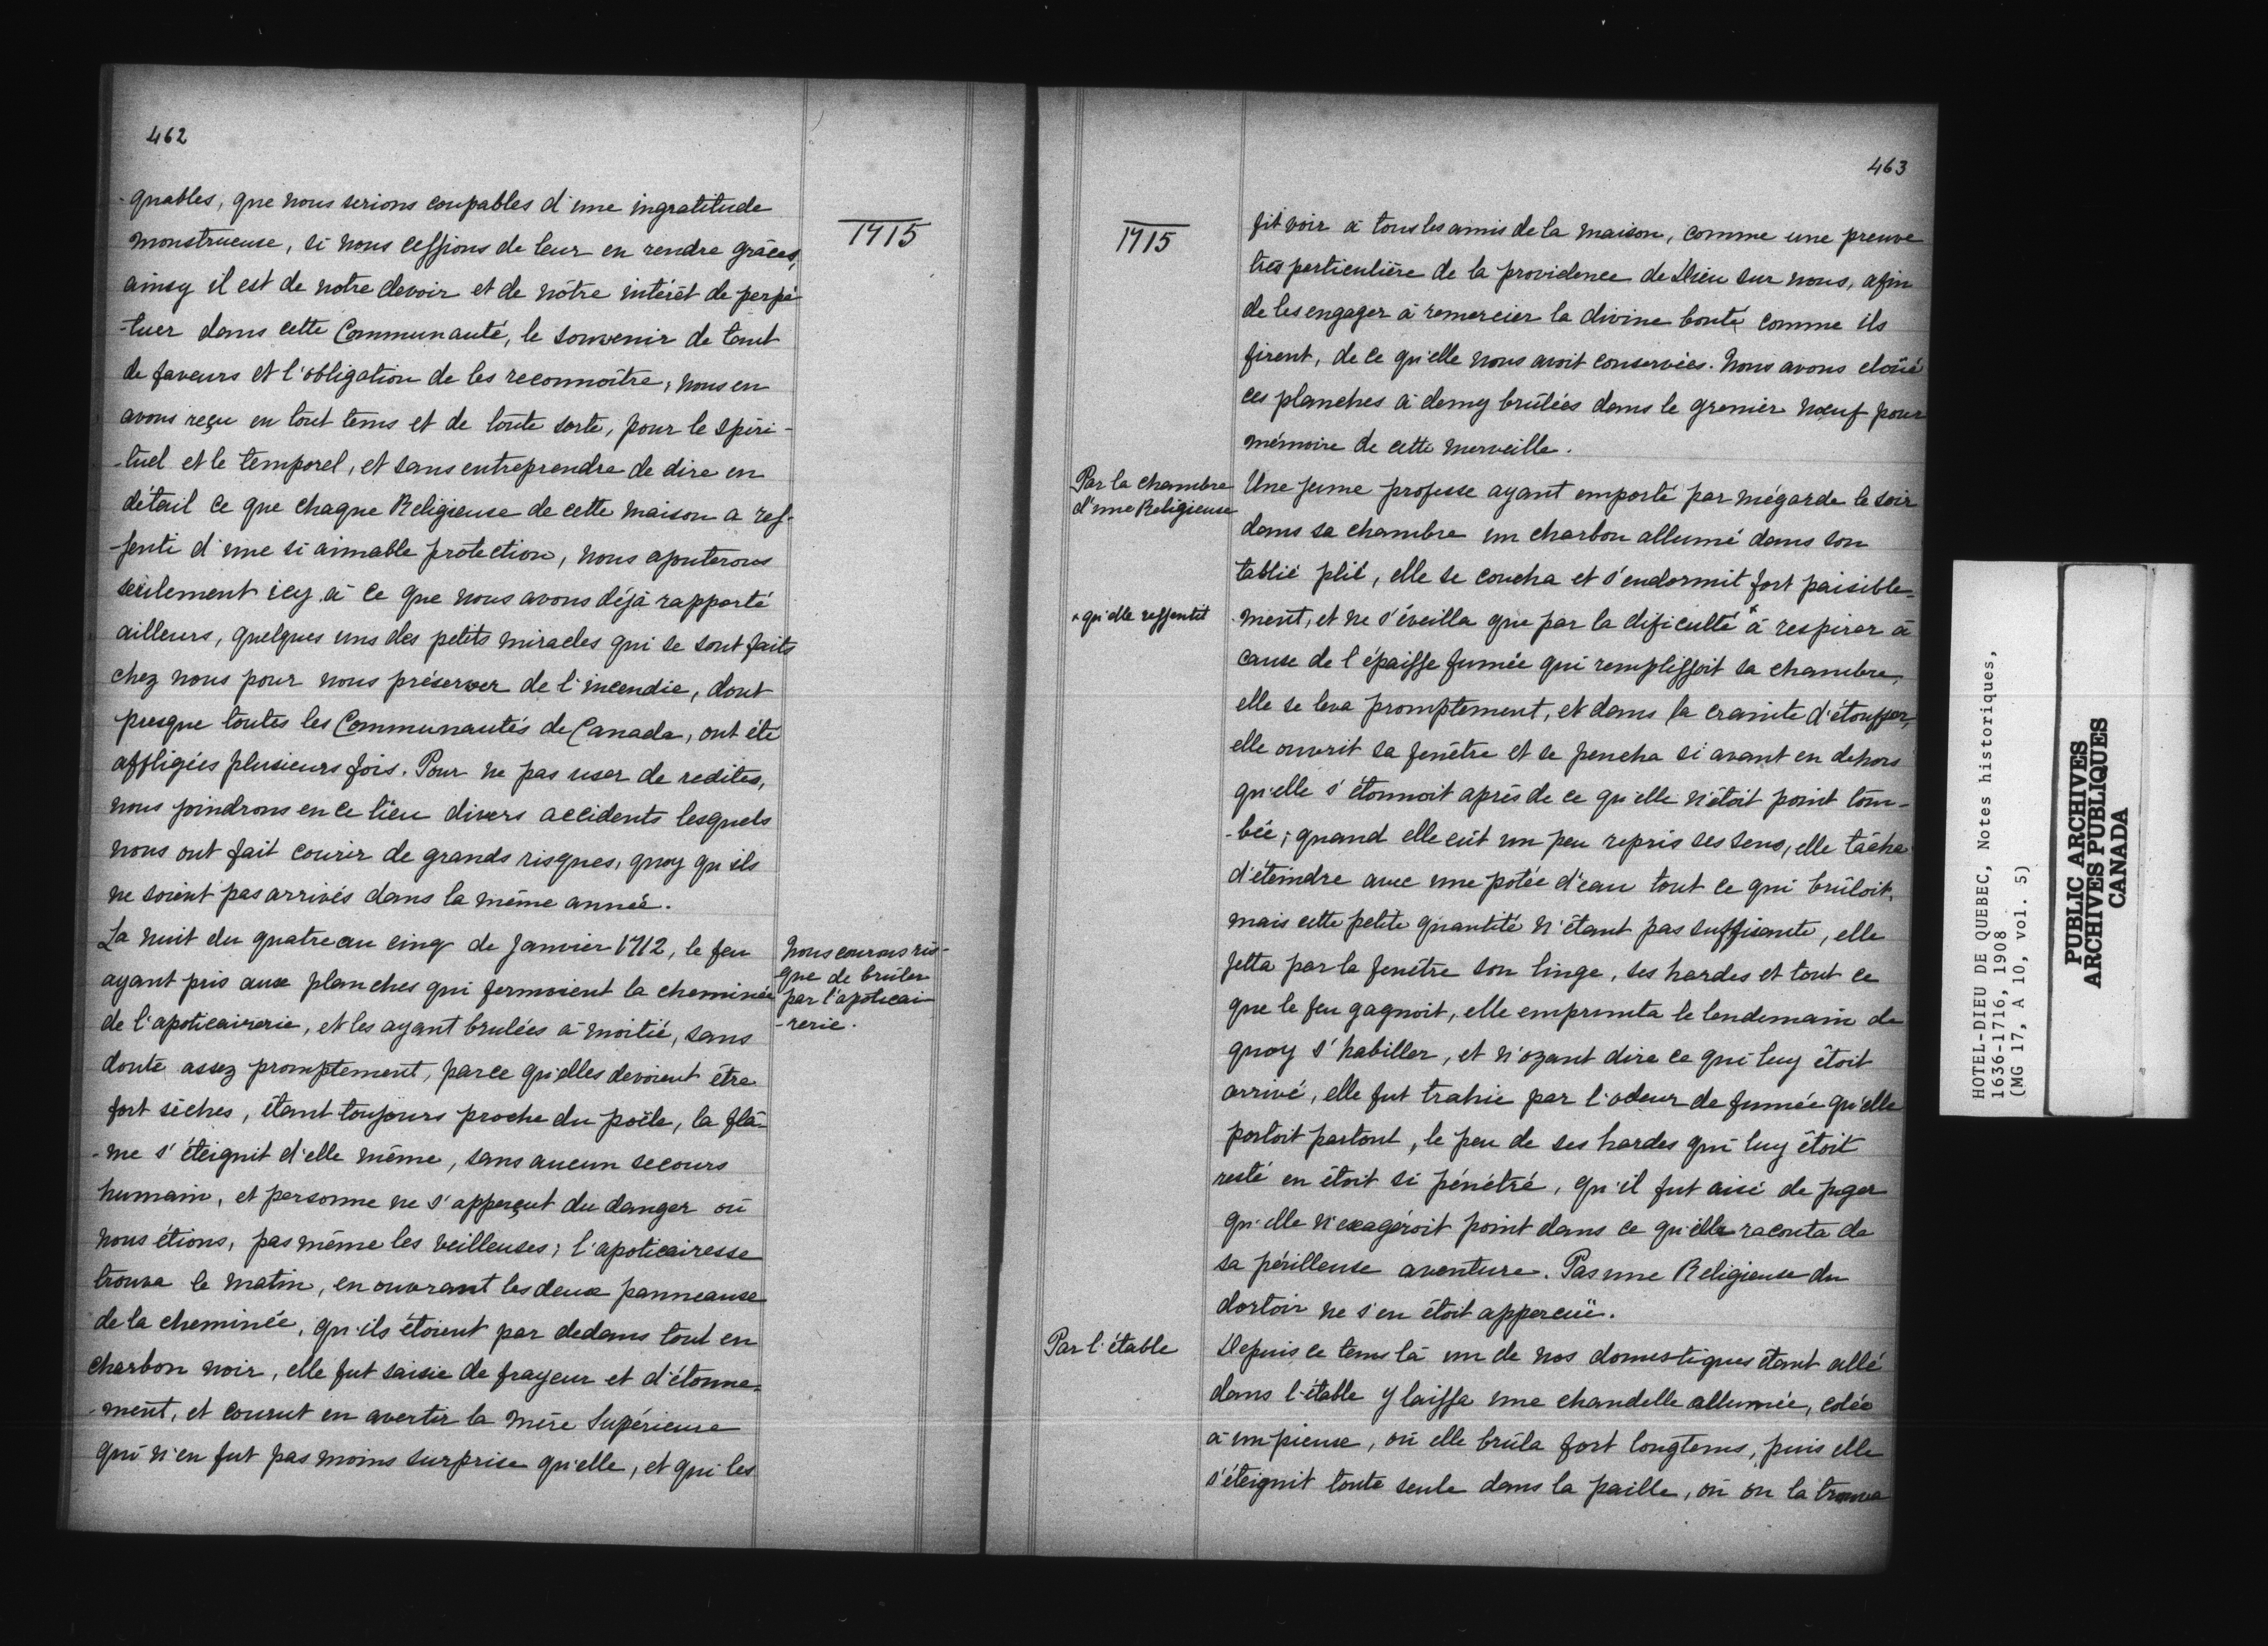 462
1715
-quables, que nous serions coupables d'une ingratitude
monstrueuse, si nous cessions de leur en rendre grâces,
ainsy il est de notre devoir et de nôtre intérêt de perpé
-tuer dans cette Communauté, le souvenir de tant
de faveurs et l'obligation de les reconnoître, nous en
avons reçu en tout tems et de toute sorte, pour le spiri-
-tuel et le temporel, et sans entreprendre de dire en
détail ce que chaque Religieuse de cette maison a res-
-senti d'une si aimable protection, nous ajouterons
seulement icy à ce que nous avons déjà rapporté
ailleurs, quelques uns des petits miracles qui se sont faits
chez nous pour nous préserver de l'incendie, dont
presque toutes les Communautés de Canada, ont été
affligées plusieurs fois. Pour ne pas user de redites,
nous joindrons en ce lieu divers accidents lesquels
nous ont fait courir de grands risques, quoy qu'ils
ne soient pas arrivés dans la même année.
Nous courons ris-
que de brûler
par l'apoticai
-rerie.
La nuit du quatre au cinq de Janvier 1712, le feu
ayant pris aux planches qui fermoient la cheminée
de l'apoticairerie, et les ayant brulées à moitié, sans
doute assez promptement, parce qu'elles devoient être
fort sèches, étant toujours proche du poële, la flâ-
-me s'éteignit d'elle même, sans aucun secours
humain, et personne ne s'apperçut du danger où
nous étions, pas même les veilleuses; l'apoticairesse
trouva le matin, en ouvrant les deux panneaux
de la cheminée, qu'ils étoient par dedans tout en
charbon noir, elle fut saisie de frayeur et d'étonne-
-ment, et courut en avertir la mère Supérieure
qui n'en fut pas moins surprise qu'elle, et qui les
463
1715
fit voir à tous les amis de la maison, comme une preuve
très perticulière de la providence de Dieu sur nous, afin
de les engager à remercier la divine bonté comme ils
firent, de ce qu'elle nous avoit conservées. Nous avons cloüé
ces planches à demy brûlées dans le grenier nœuf pour
mémoire de cette merveille.
Par la chambre
d'une Religieuse
Une jeune professe ayant emporté par mégarde le soir
dans sa chambre un charbon allumé dans son
tablié plié, elle se coucha et s'endormit fort paisible-
-ment, et ne s'éveilla que par la dificulté * à respirer à
* qu'elle ressentit
cause de l'épaisse fumée qui remplissoit sa chambre,
elle se leva promptement, et dans la crainte d'étouffer,
elle ouvrit sa fenêtre et se pencha si avant en dehors
qu'elle s'étonnoit après de ce qu'elle n'étoit point tom-
-bée; quand elle eût un peu repris ses sens, elle tâcha
d'éteindre avec une potée d'eau tout ce qui brûloit,
mais cette petite quantité n'étant pas suffisante, elle
jetta par la fenêtre son linge, ses hardes et tout ce
que le feu gagnoit, elle emprunta le lendemain de
quoy s'habiller, et n'ozant dire ce qui luy étoit
arrivé, elle fut trahie par l'odeur de fumée qu'elle
portoit partout, le peu de ses hardes qui luy étoit
resté en étoit si pénétré, qu'il fut aisé de juger
qu'elle n'exagéroit point dans ce qu'elle raconta de
sa périlleuse aventure. Pas une Religieuse du
dortoir ne s'en étoit apperceüe.
Par l'étable
Depuis ce tems là un de nos domestiques étant allé
dans l'étable y laissa une chandelle allumée, colée
à un pieux, où elle brûla fort longtems, puis elle
s'éteignit toute seule dans la paille, où on la trouva
HOTEL-DIEU DE QUEBEC, Notes historiques,
1636-1716, 1908
(MG 17, A 10, vol. 5)
PUBLIC ARCHIVES
ARCHIVES PUBLIQUES
CANADA